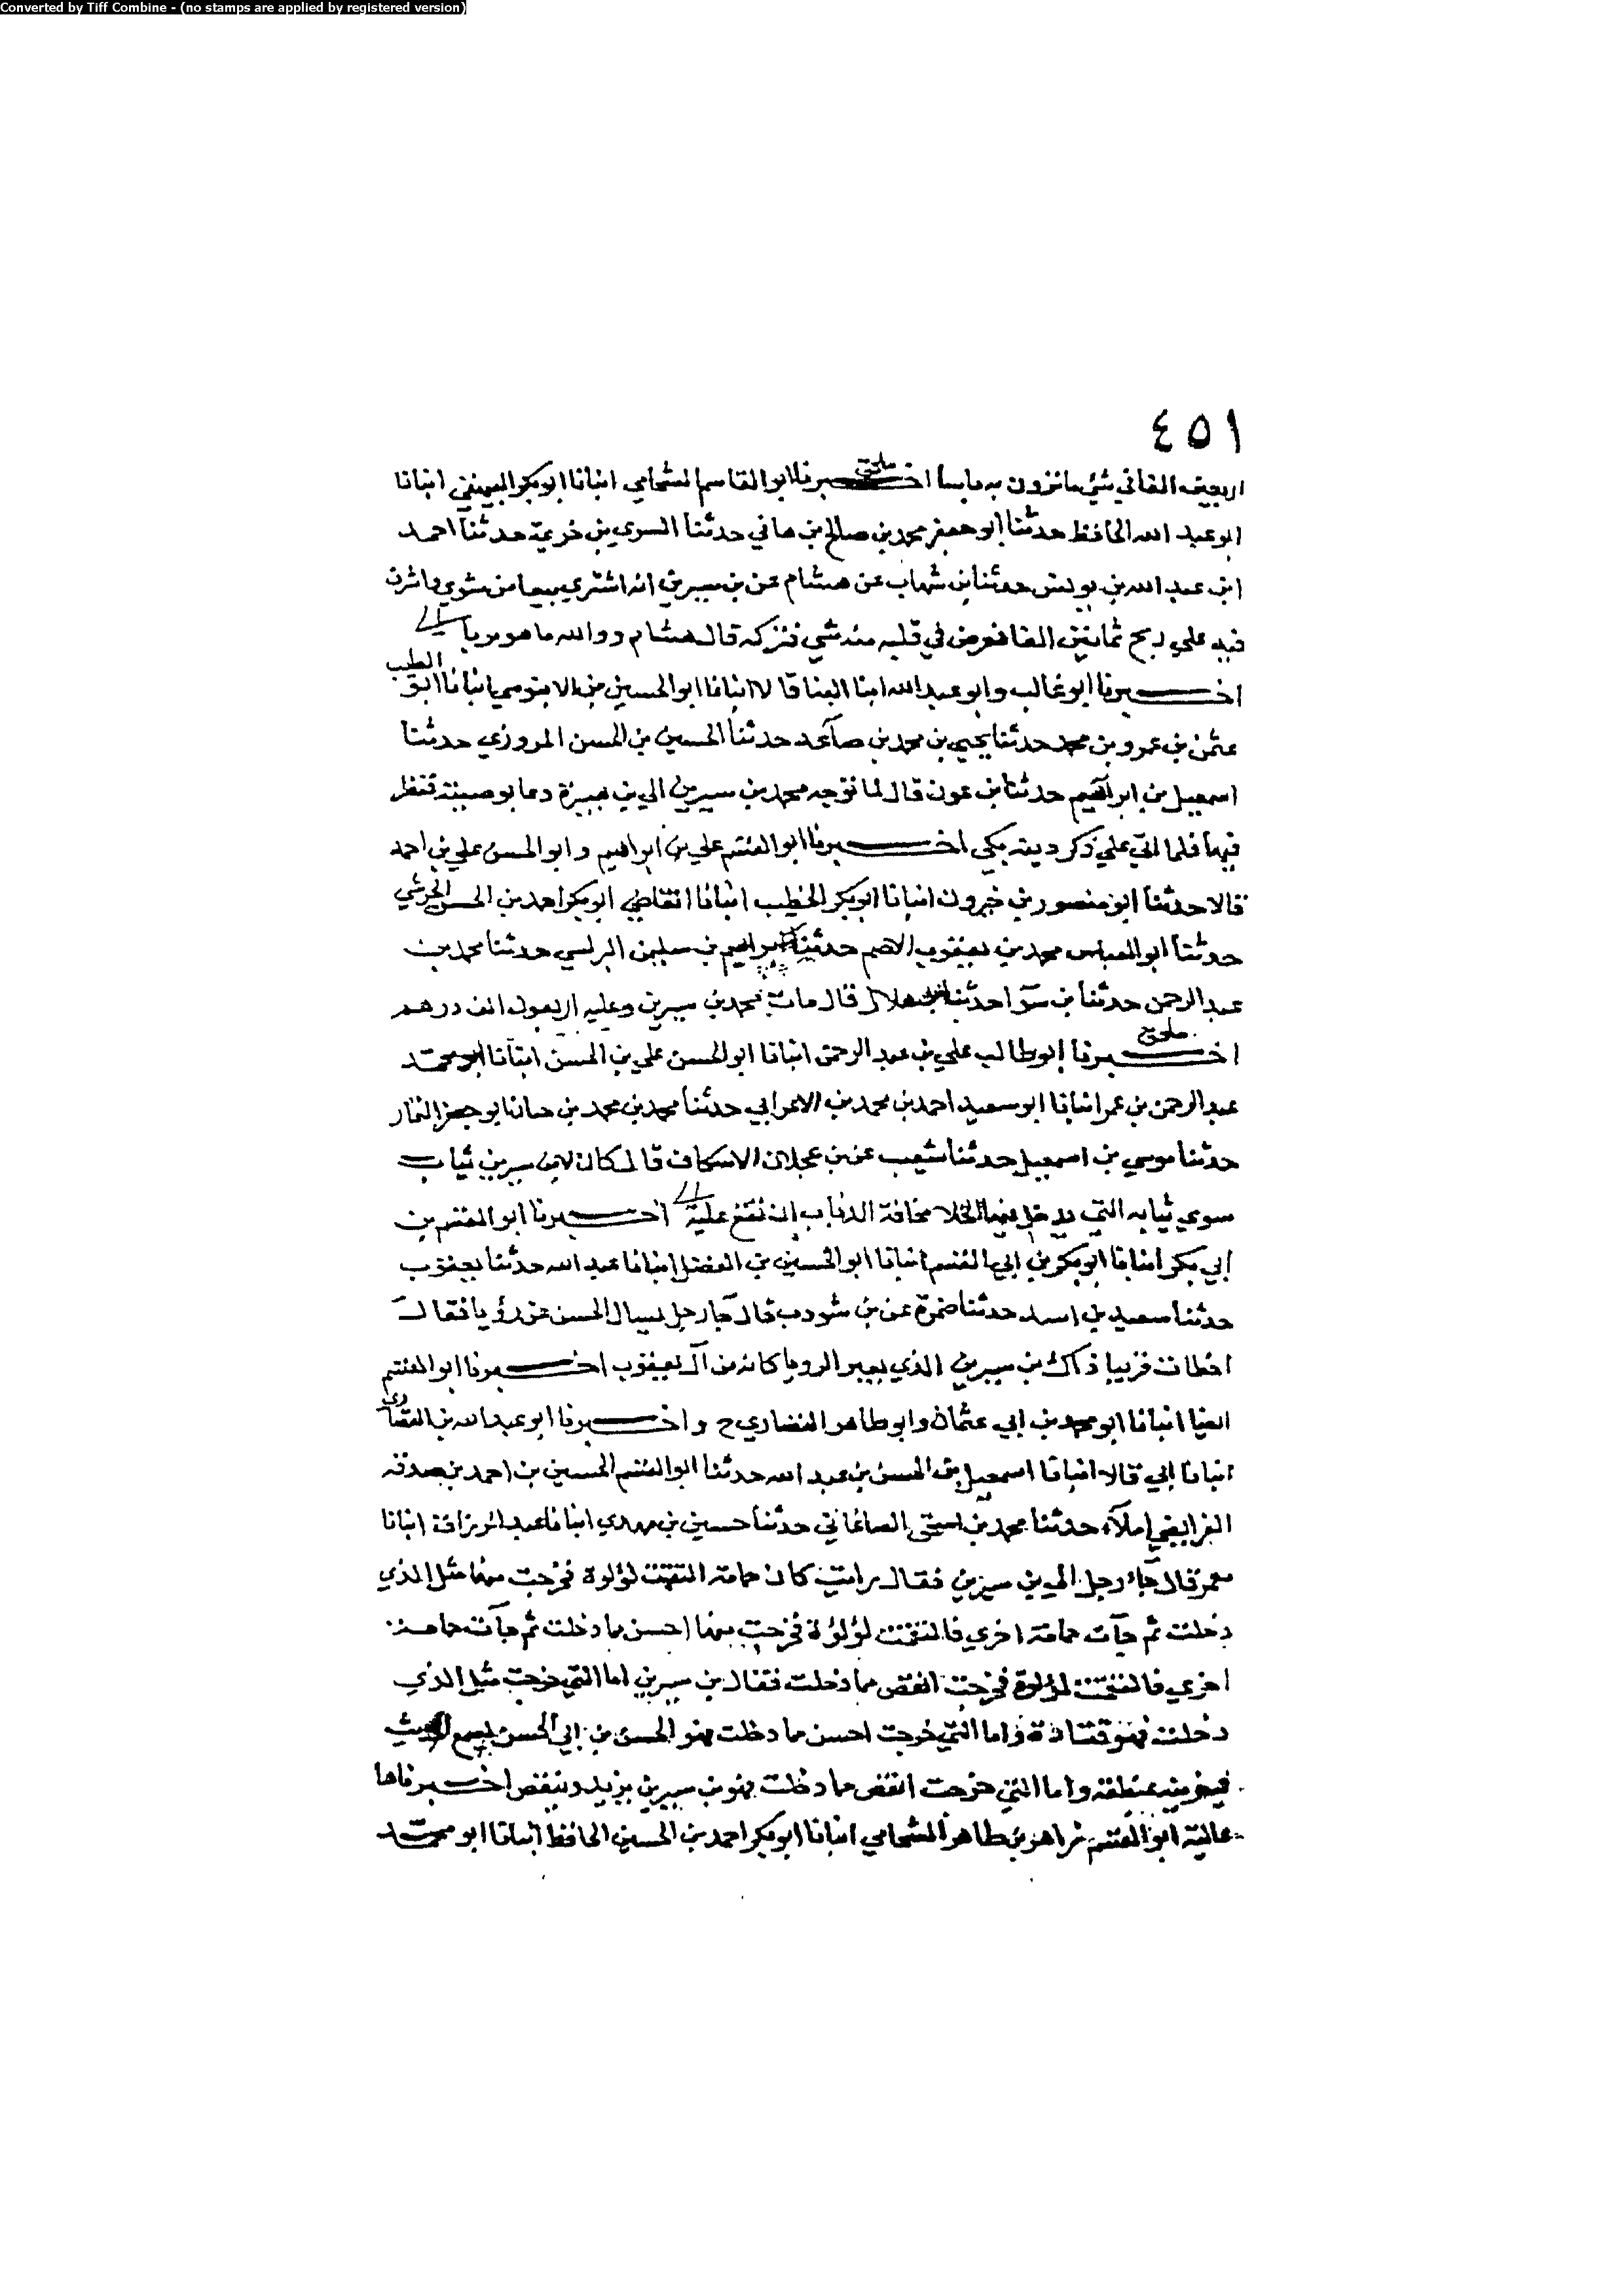 Converted by Tiff Combine - (no stamps are applied by registered version)
٤٥١
اربعين الفا في شئ ما تزون به باسا اخبرنا ابو القاسم الشحامي انبانا ابو بكر البيهقي انبانا
ابو عبد الله الحافظ حدثنا ابو جعفر محمد بن صالح بن هاني حدثنا السري بن خزيمة حدثنا احمد
ابن عبد الله بن يونس حدثنا بن شهاب عن هشام عن بن سيرين انه اشتري بيعا من
فيه علي ربح ثمانين الفا فعرض في قلبه منه شي فتركه قال هشام والله ما هو بربا
اخبرنا ابو غالب وابو عبد الله ابنا البنا قالا انبانا ابو الحسين بن الابنوسي انبانا ابو الطيب
عثمن بن عمرو بن محمد حدثنا يحيي بن محمد بن صاعد حدثنا الحسين بن الحسن المروزي حدثنا
اسمعيل بن ابراهيم حدثنا بن عون قال لما توجه محمد بن سيرين الي بن هبيرة دعا بوصيته فنظر
فيها فلما اتي علي ذكر دينه بكي اخبرنا ابو القسم علي بن ابراهيم وابو الحسن علي بن احمد
قالا حدثنا ابو منصور بن خيرون انبانا ابو بكر الخطيب انبانا القاضي ابو بكر احمد بن الحسن الحرشي
حدثنا ابو العباس محمد بن يعقوب الاصم حدثنا ابراهيم بن سليمن البرلسي حدثنا محمد بن
عبد الرحمن حدثنا بن سوا حدثنا ابو هلال قال مات محمد بن سيرين وعليه اربعون الف درهم
اخبرنا ابو طالب علي بن عبد الرحمن انبانا ابو الحسن علي بن الحسن انبانا ابو محمد
عبد الرحمن بن عمر انبانا ابو سعيد احمد بن محمد بن الاعرابي حدثنا محمد بن محمد بن حبان ابو جعفر التمار
حدثنا موسي بن اسمعيل حدثنا شعيب عن بن عجلان الاسكاف قال كان لابن سيرين ثياب
سوي ثيابه التي يدخل فيها الخلا مخافة الذباب ان تقع عليه اخبرنا ابو القسم بن
ابي بكر انبانا ابو بكر بن ابي القسم انبانا ابو الحسين بن الفضل انبانا عبد الله حدثنا يعقوب
حدثنا سعيد بن اسد حدثنا ضمرة عن بن شوذب قال جا رجل يسال الحسن عن رؤيا فقال
اخطات قريبا ذاك بن سيرين الذي يعبر الرويا كانه من آل يعقوب اخبرنا ابو القسم
ايضا انبانا ابو محمد بن ابي عثمان وابو طاهر القصاري ح واخبرنا ابو عبد الله بن القصاري
انبانا ابي قالا انبانا اسمعيل بن الحسن بن عبد الله حدثنا ابو القسم الحسين بن احمد بن صدقه
الفرايضي املآء حدثنا محمد بن اسحق الصاغاني حدثنا حسين بن مهدي انبانا عبد الرزاق انبانا
معمر قال جاء رجل الي بن سيرين فقال رايت كان حمامة التقمت لؤلوة فخرجت منها مثل الذي
دخلت ثم جآت حمامة اخري فالتقمت لؤلؤة فخرجت منها احسن مما دخلت ثم جآت حمامة
اخري فالتقمت لؤلؤة فخرجت انقص مما دخلت فقال بن سيرين اما التي خرجت مثل الذي
دخلت فهو قتادة واما التي خرجت احسن مما دخلت فهو الحسن بن ابي الحسن يسمع الحديث
فيخرجه بمنطقه واما التي خرجت انقص مما دخلت فهو بن سيرين يزيد وينقص اخبرناها
عالية ابو القسم زاهر بن طاهر الشحامي انبانا ابو بكر احمد بن الحسين الحافظ انبانا ابو محمد